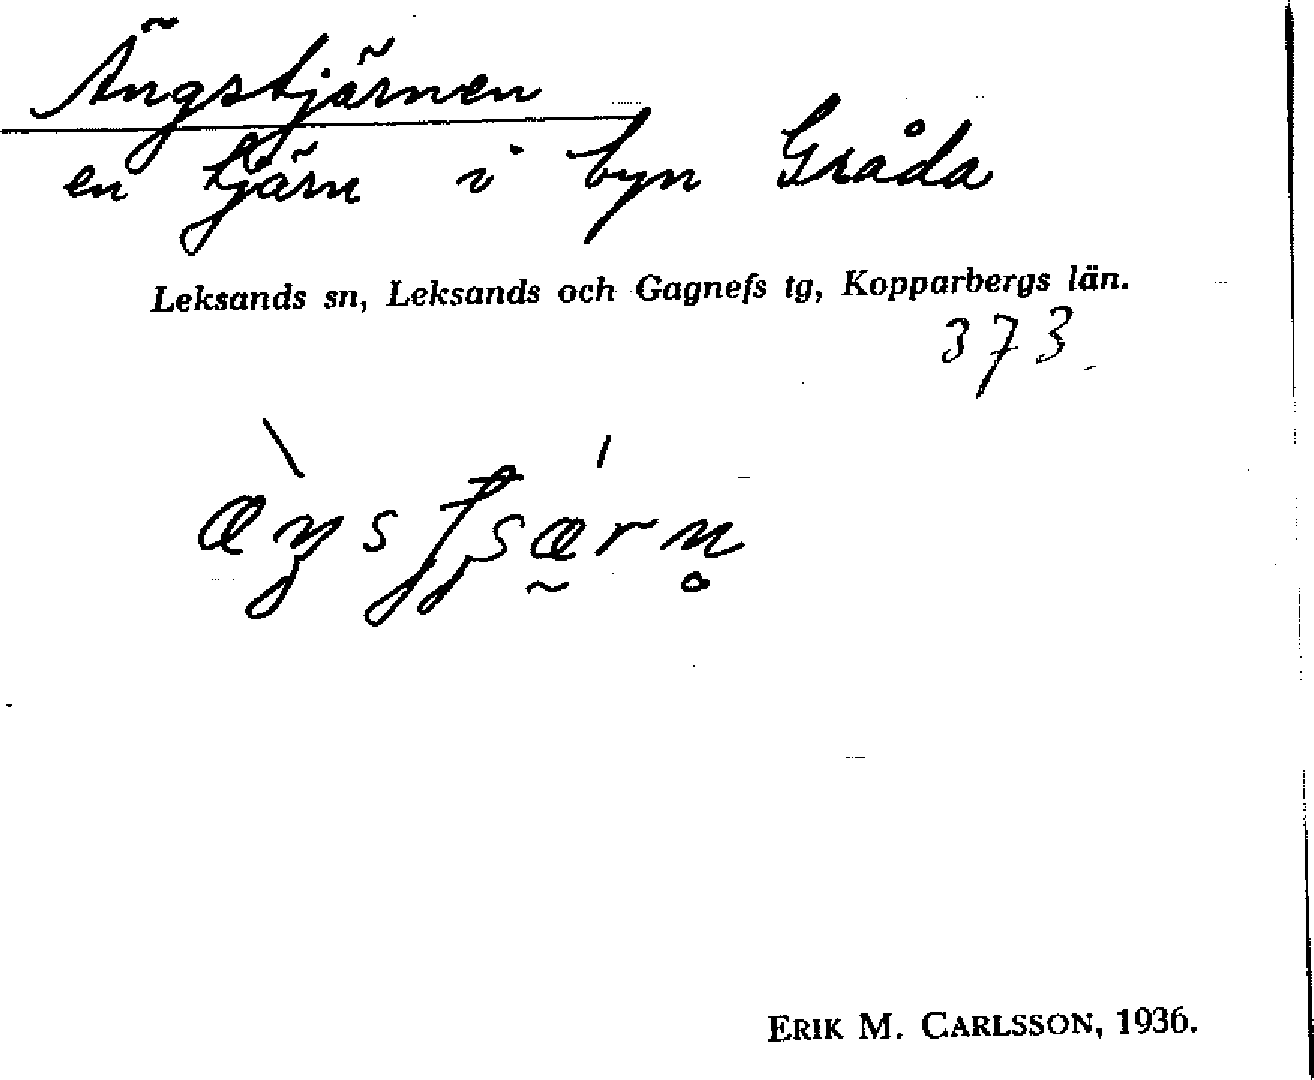 Ängstjärnen
en tjärn i byn Gråda
Leksands sn, Leksands och Gagnefs tg, Kopparbergs län.
373.
ERIK M. CARLSSON, 1936.